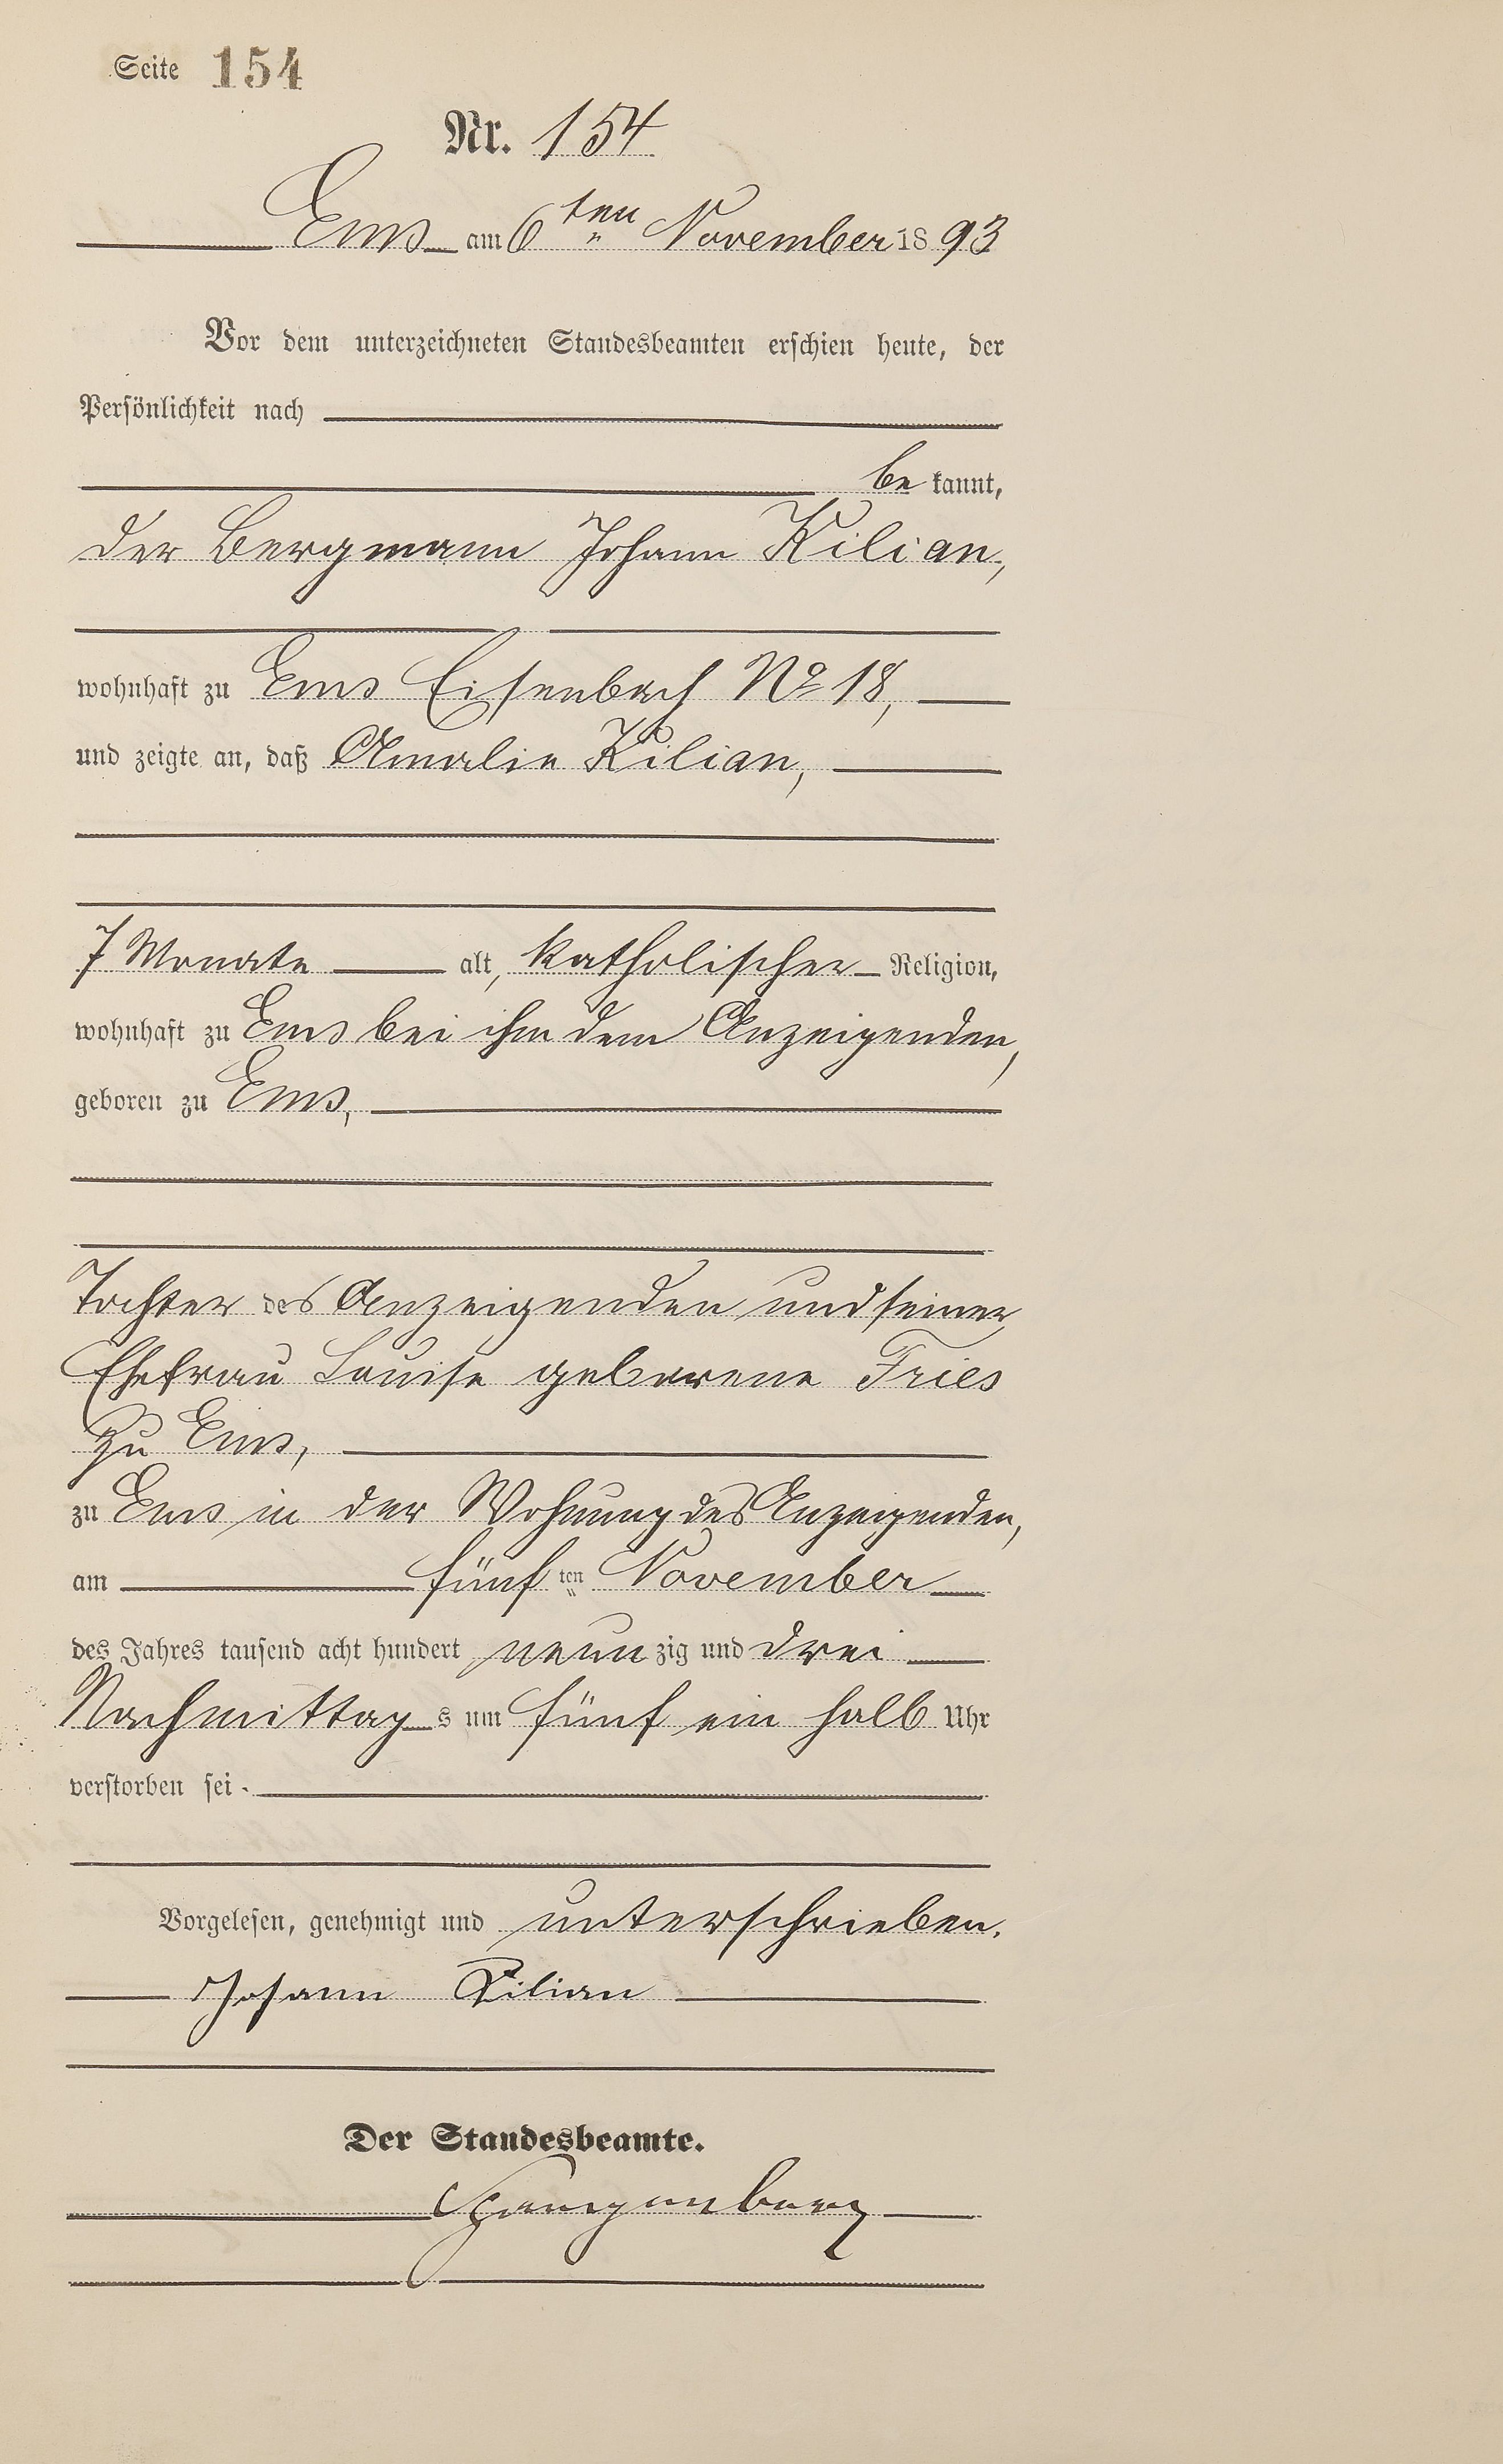 Seite 154
Nr. 154
Ems am 6ten November 1893
Vor dem unterzeichneten Standesbeamten erschien heute, der
Persönlichkeit nach
be kannt,
der Bergmann Johann Kilian,
wohnhaft zu Ems Eisenbach No 18,
und zeigte an, daß Amalie Kilian,
7 Monate alt, katholischer Religion,
wohnhaft zu Ems bei ihm dem Anzeigenden,
geboren zu Ems,
Tochter des Anzeigenden und seiner
Ehefrau Louise geborene Fries
zu Ems,
zu Ems in der Wohnung des Anzeigenden,
am fünften November
des Jahres tausend acht hundert neunzig und drei
Nachmittags um fünf ein halb Uhr
verstorben sei.
Vorgelesen, genehmigt und unterschrieben.
Johann Kilian
Der Standesbeamte.
Spangenberg